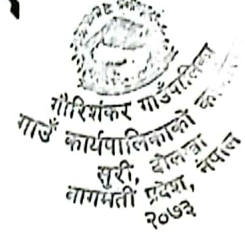 गौरिशंकर गाउँपालिका
गाउँ कार्यपालिकाको
सुरी, दोलखा
बागमती प्रदेश, नेपाल
२०७३